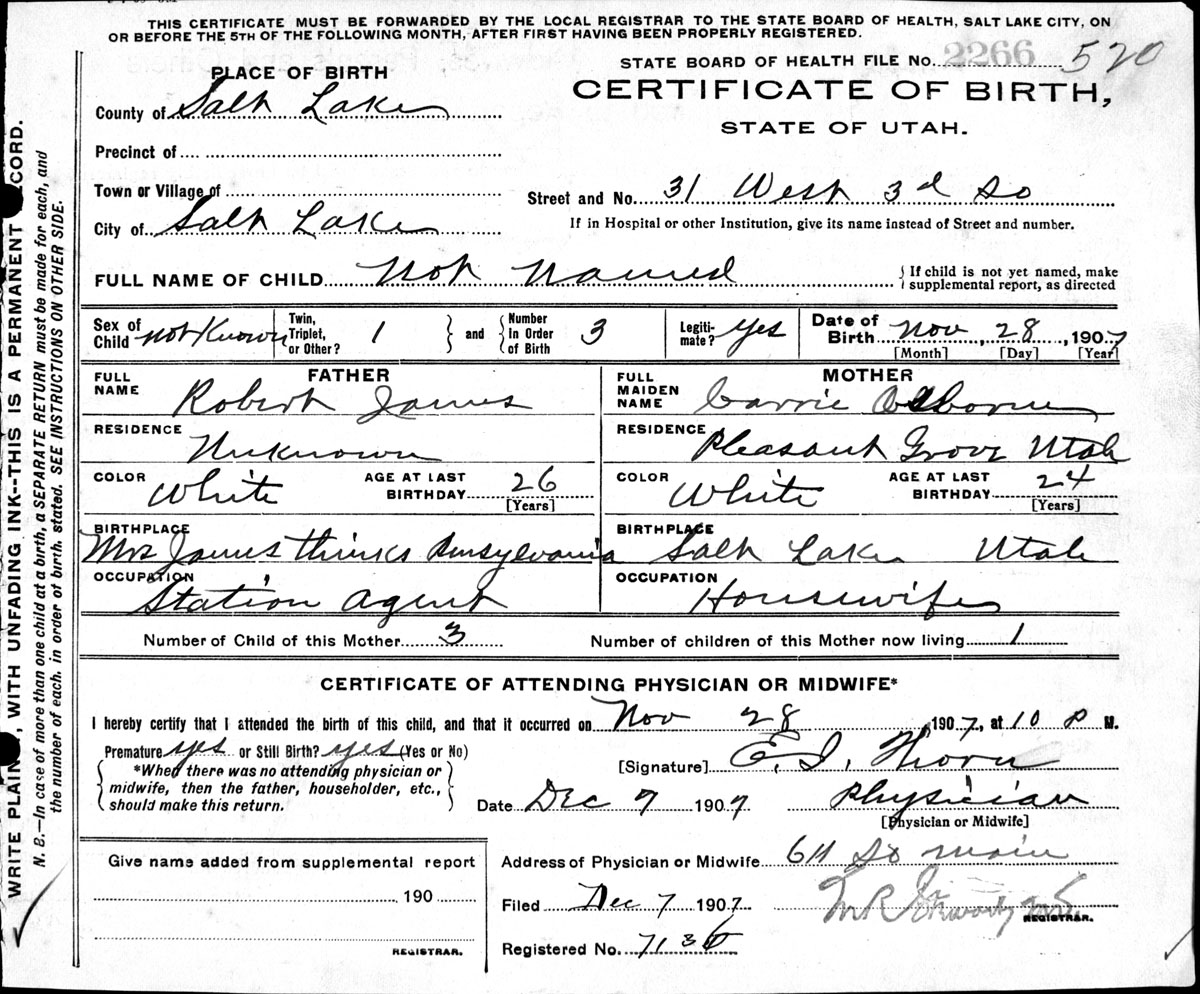 THIS CERTIFICATE MUST BE FORWARDED BY THE LOCAL REGISTRAR TO THE STATE BOARD OF HEALTH, SALT LAKE CITY, ON
OR BEFORE THE 5TH OF THE FOLLOWING MONTH, AFTER FIRST HAVING BEEN PROPERLY REGISTERED.
STATE BOARD OF HEALTH FILE No. 2266 520
CERTIFICATE OF BIRTH,
STATE OF UTAH.
PLACE OF BIRTH
County of Salt Lake
Precinct of
Town or Village of
City of Salt Lake
Street and No. 31 West 3d So
If in Hospital or other Institution, give its name instead of Street and number.
FULL NAME OF CHILD Not Named
If child is not yet named, make
supplemental report, as directed
Sex of
Child not Known
Twin,
Triplet,
or Other? 1
and
Number
in Order
of Birth 3
Legiti-
mate? yes
Date of
Birth Nov, 28, 1907
[Month] [Day] [Year]
FATHER
FULL
NAME Robert James
RESIDENCE
Unknown
COLOR White
AGE AT LAST
BIRTHDAY 26
[Years]
BIRTHPLACE
Mrs James thinks Pensylvania
OCCUPATION
Station Agent
MOTHER
FULL
MAIDEN
NAME Carrie Osborne
RESIDENCE Pleasant Grove Utah
COLOR White
AGE AT LAST
BIRTHDAY 24
[Years]
BIRTHPLACE
Salt Lake Utah
OCCUPATION
Housewife
Number of Child of this Mother 3
Number of children of this Mother now living 1
CERTIFICATE OF ATTENDING PHYSICIAN OR MIDWIFE*
I hereby certify that I attended the birth of this child, and that it occurred on Nov 28, 1907, at 10 P M.
Premature yes or Still Birth? yes (Yes or No)
*When there was no attending physician or
midwife, then the father, householder, etc.,
should make this return.
[Signature] E. I.
Date Dec 7 1907
Physician
[Physician or Midwife]
Give name added from supplemental report
190
REGISTRAR.
Address of Physician or Midwife 611 So Main
Filed Dec 7 1907
REGISTRAR.
Registered No. 713
WRITE PLAINLY, WITH UNFADING INK--THIS IS A PERMANENT RECORD.
N. B.—In case of more than one child at a birth, a SEPARATE RETURN must be made for each, and
the number of each, in order of birth, stated. SEE INSTRUCTIONS ON OTHER SIDE.